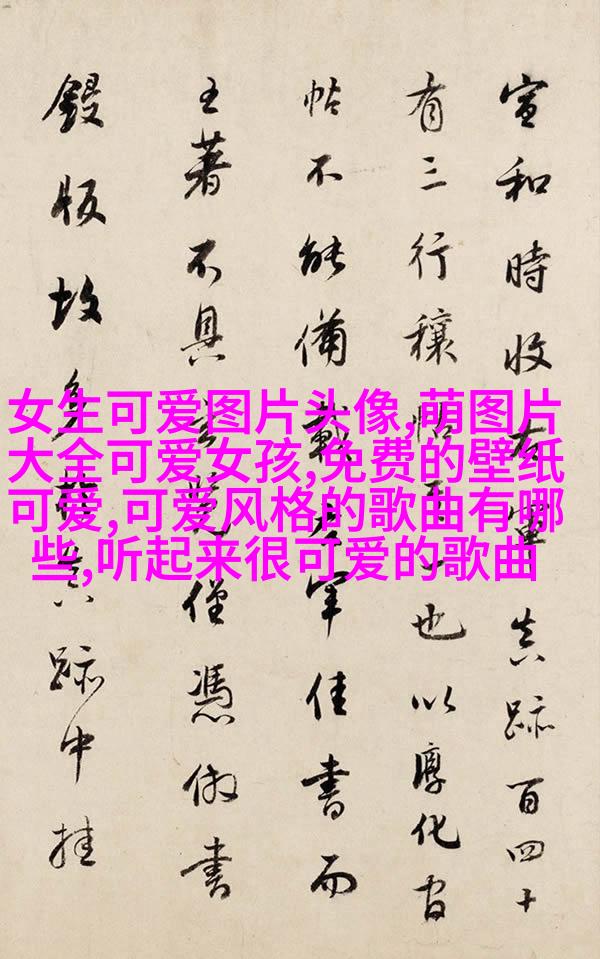 宣和時收右軍真跡百四十
有三行穰帖其一也以淳化官
帖不能備載右軍佳書而
王著不具覽僅憑倣書
鋟版故多真跡中挂
女生可爱图片头像,萌图片
大全可爱女孩,免费的壁纸
可爱,可爱风格的歌曲有哪
些,听起来很可爱的歌曲